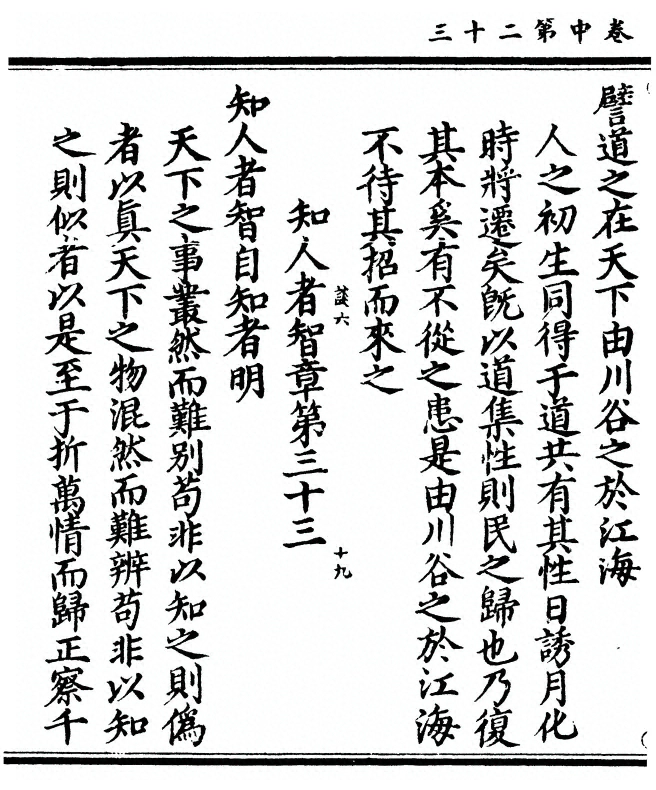 卷中第二十三
譬道之在天下由川谷之於江海
人之初生同得于道共有其性日誘月化
時將遷矣旣以道集性則民之歸也乃復
其本奚有不從之患是由川谷之於江海
不待其招而來之
知人者智章第三十三
十九
知人者智自知者明
天下之事叢然而難別苟非以知之則僞
者以眞天下之物混然而難辨苟非以知
之則似者以是至于折萬情而歸正察千